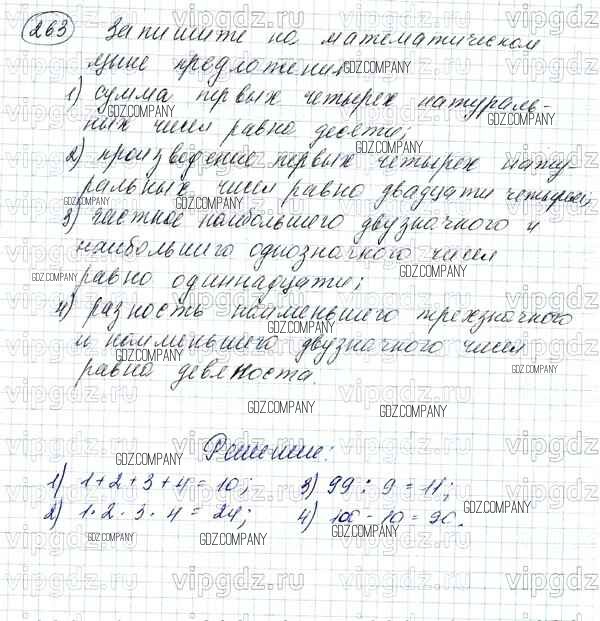 263 Запишите на математическом
языке предложения
1) сумма первых четырех натураль-
ных чисел равна десяти;
2) произведение первых четырех нату
ральных чисел равно двадцати четырем;
3) частное наибольшего двузначного и
наибольшего однозначного чисел
равно одиннадцати;
4) разность наименьшего трехзначного
и наименьшего двузначного чисел
равна девяноста.
Решение:
1) 1+2+3+4=10; 3) 99 : 9 = 11;
2) 1·2·3·4=24; 4) 100-10=90.
GDZ.COMPANY
vipgdz.ru